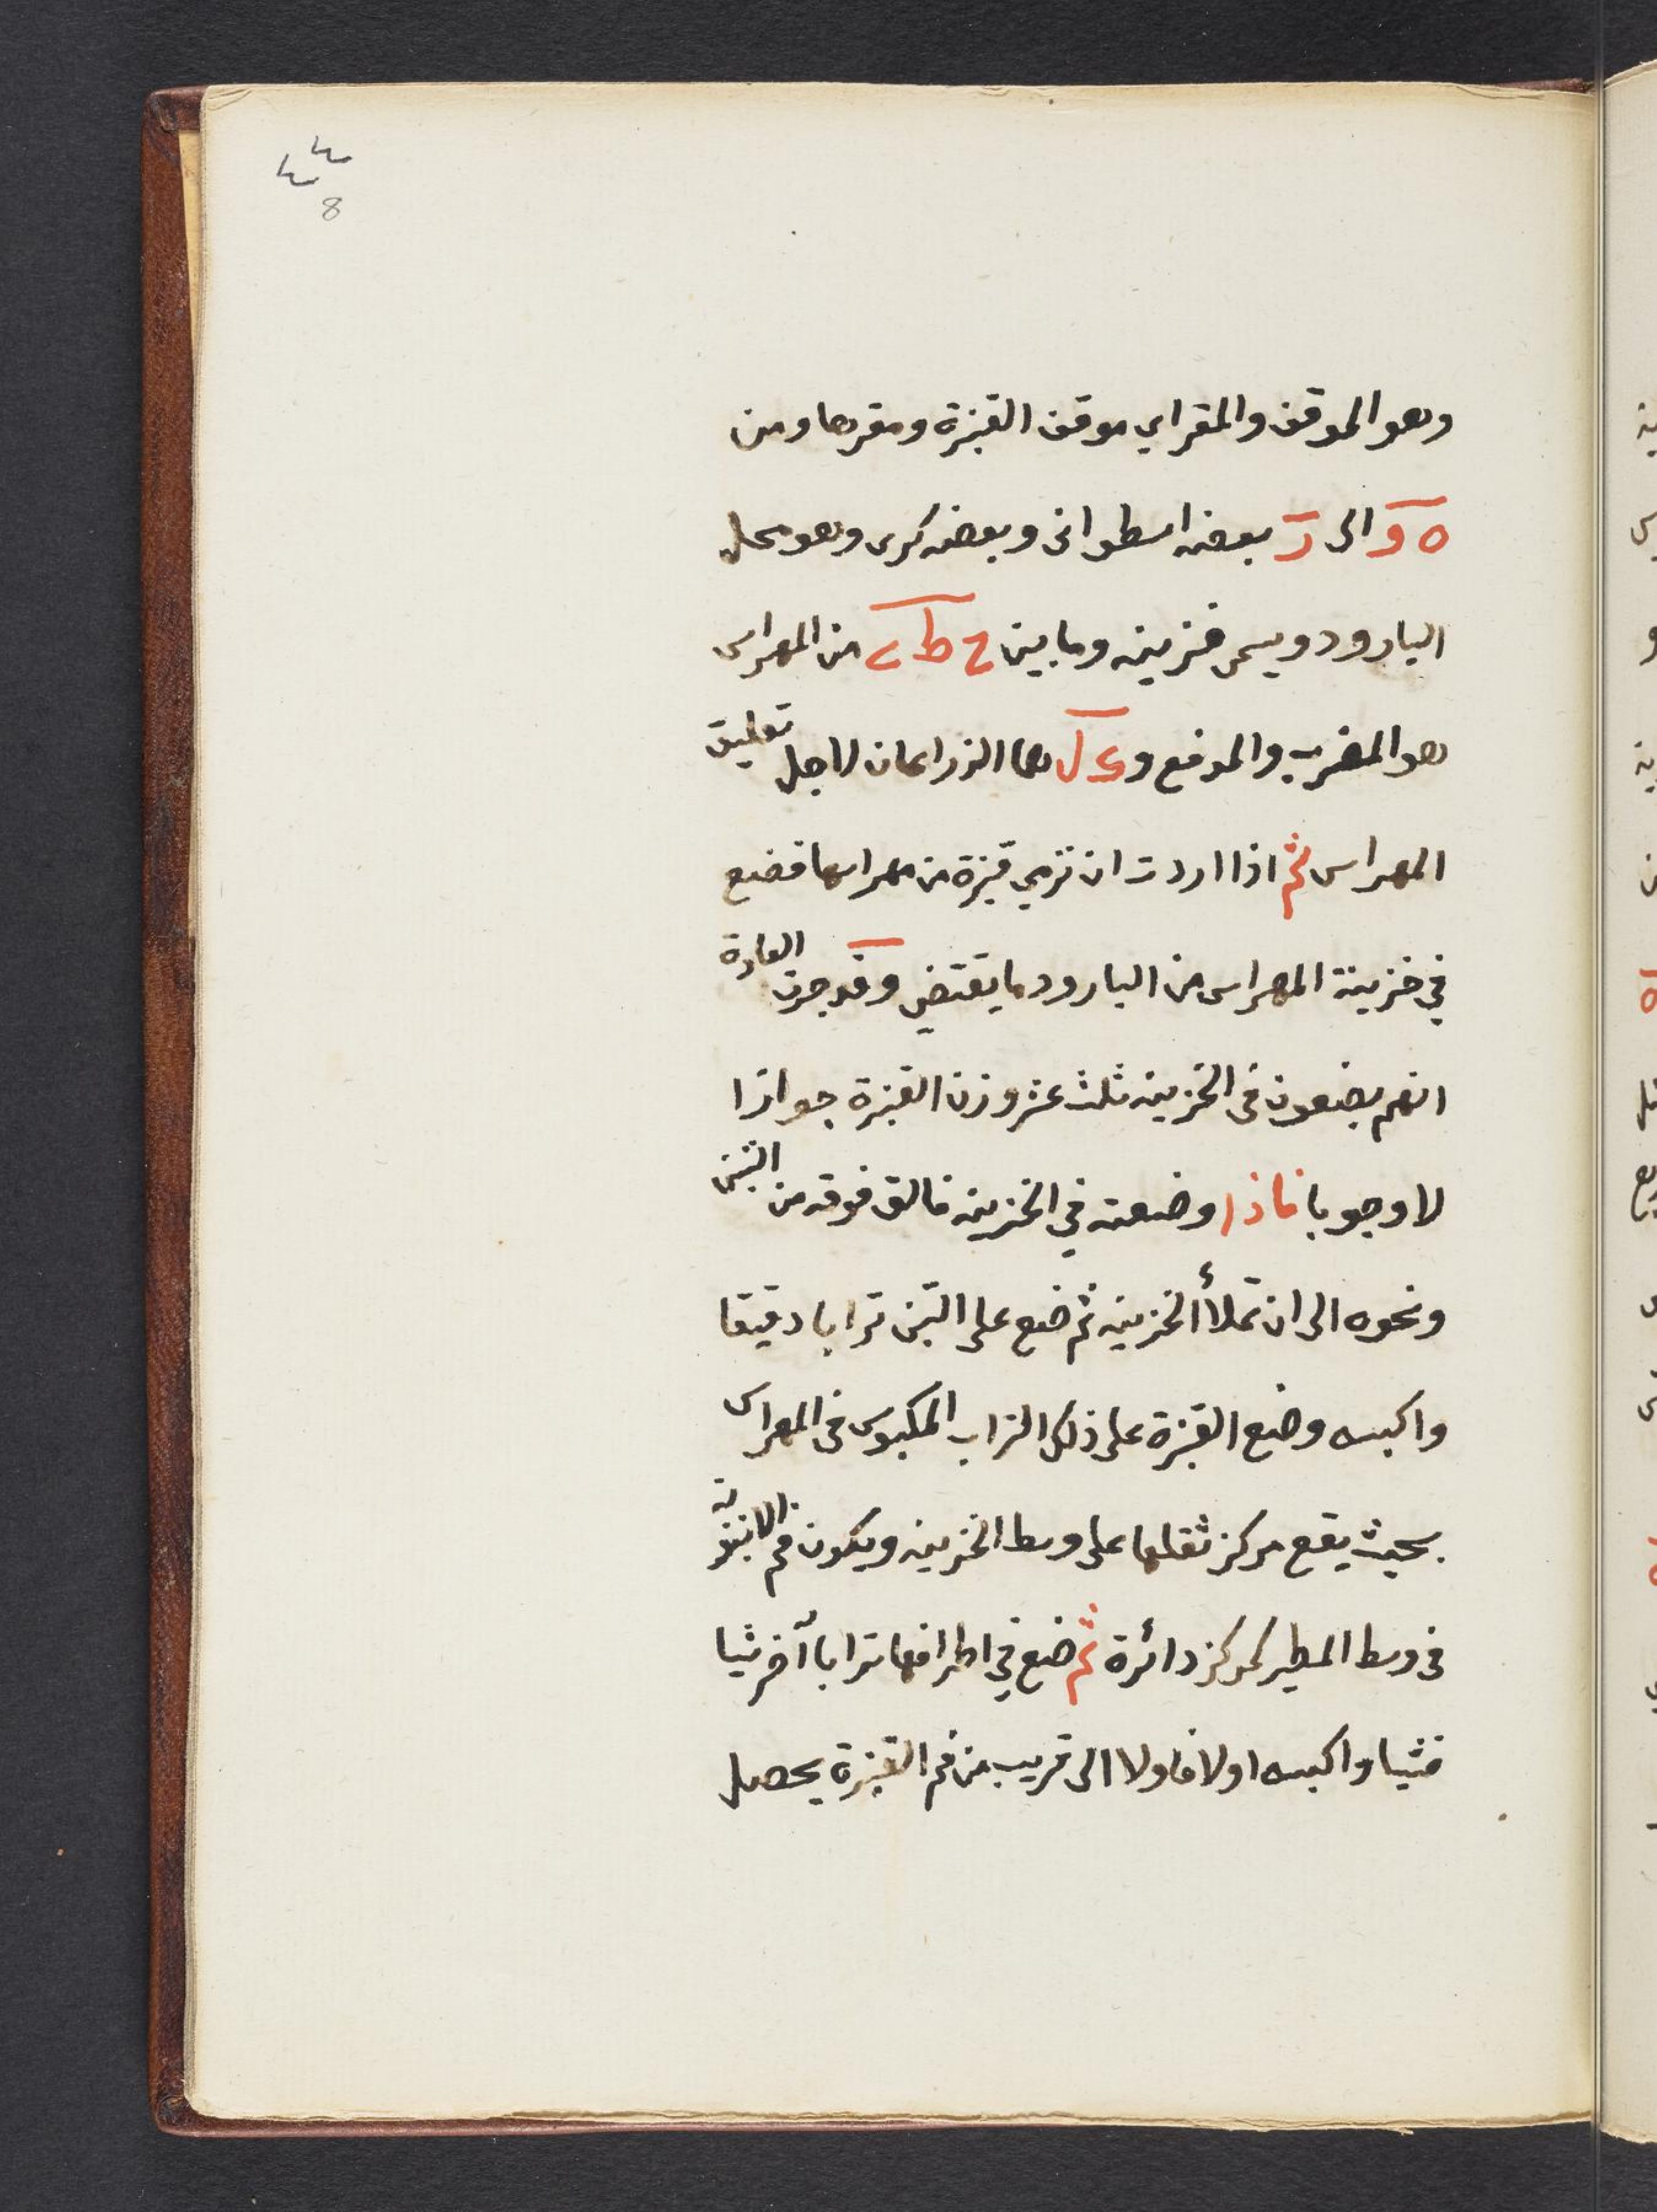 ٤٤
8
وهو الموقف والمقر اي موقف القنبرة ومقرها ومن
ه و الى ز بعضه اسطوانى وبعضه كرى وهو محل
البارود ويسمى خزينه وما بين ح ط ى من المهراس
هو المضرب والمدفع و ى ل هما الذراعان لاجل تعليق
المهراس ثم اذا اردت ان ترمي قنبرة من مهراسها فضع
في خزينة المهراس من البارود ما يقتضي وقد جرت العادة
انهم يضعون فى الخزينه ثلث عشر وزن القنبرة جوازا
لا وجوبا فاذا وضعته في الخزينه فالق فوقه من التبن
ونحوه الى ان تملأ الخزينه ثم ضع على التبن ترابا دقيقا
واكبسه وضع القنبرة على ذلك التراب المكبوس فى المهراس
بحيث يقع مركز ثقلها على وسط الخزينه ويكون فم
فى وسط المطير كمركز دائرة ثم ضع في اطرافها ترابا آخر شيا
فشيا واكبسه اولا فاولا الى قريب من فم القنبرة يحصل